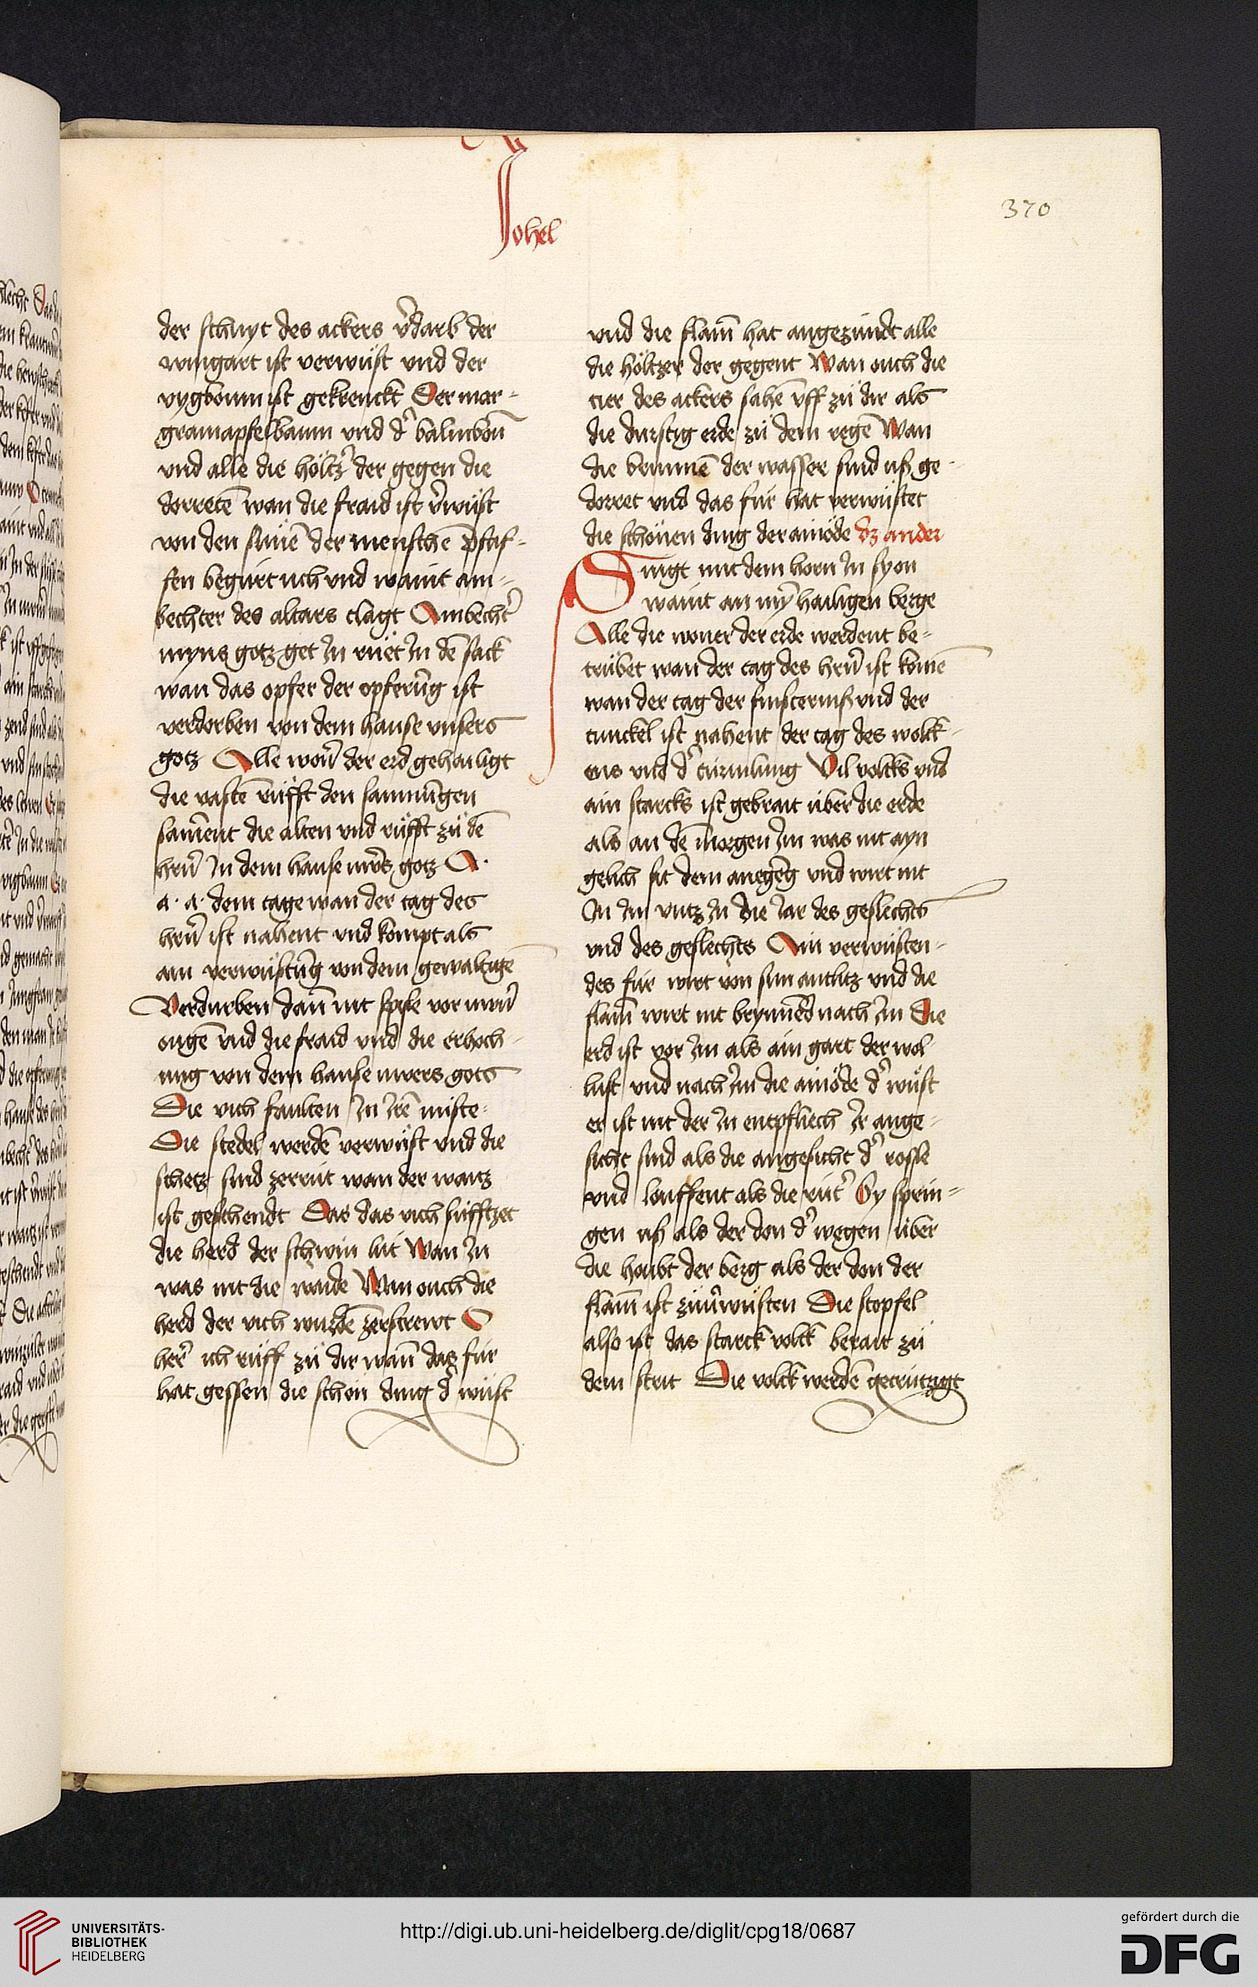 Johel
370
der schnyt des ackers v̄darb der
wingart ist verwüst vnd der
vygboum ist gekrenckt Der mar-
gramapfelbaum vnd d' balmboū
vnd alle die höltz' der gegen die
dorretē wan die fraid ist v̄wüst
von den sünē der menschē pfaf-
fen begürt uch vnd waint am-
bechter des altars clagt Ambecht'
myns gotz get Jn rüet Jn dē sack
wan das opfer der opferūg ist
verdorben von dem hause vnsers
gotz Alle won' der erd gehailigt
die vastē rüfft den samnūgen
sāment die alten vnd rüfft zü dē
hrn̄ Jn dem hause uw̄s gotz A.
a. a. dem tage wan der tag des
hrn̄ ist nahent vnd kompt als
ain verwüstūg von dem gewaltigē
Verdurben dañ nit spise vor uwrn̄
ougē vnd die fraid vnd die erhoch-
ung von dem hause uwers gots
Die vich faulten Jn Jrē miste-
Die stedel werdē verwüst vnd die
schetz sind zerrüt wan der waitz
ist geschendt Das das vich süfftzet
die herd der schwin lüt Wan Jn
was nit die waide Wan ouch die
herd der vich wurdē zerstrewt O
her' ich rüff zü dir wañ das für
hat gessen die schön ding d' wüst
vnd die flam̄ hat angezündt alle
die höltzer der gegent Wan ouch die
tier des ackers sahē vff zü dir als
die durstig erde zü dem regē Wan
die brunnē der wasser sind uß ge-
dorret vnd das für hat verwüstet
die schönen ding der ainöde dz ander
Singt mit dem horn Jn syon
waint an mȳ hailigen berge
Alle die woner der erde werdent be-
trübet wan der tag des hrn̄ ist komē
wan der tag der finsterniß vnd der
tunckel ist nahent der tag des wolck-
ens vnd d' türmlung Vil volcks vnd
ain starcks ist gebrait über die erde
als an dē morgen Jm was nit ayn
gelich sit dem anegēg vnd wirt nit
Jn Jm vntz Jn die Jar des geslechts
vnd des geslechts Ain verwüsten-
des für wirt von sim antlitz vnd die
flam̄ wirt nit brynnēd nach Jm Die
erd ist vor Jm als ain gart der wol
lust vnd nach Jm die ainöde d' wüst
er ist nit der Jn entpfliech Jr ange-
sicht sind als die angesicht d' rosse
vnd louffent als die rüt' Sy sprin-
gen uß als der don d' wegen über
die houbt der berg als der don der
flam̄ ist züuerwüsten Die stopfel
also ist das starck volck berait zü
dem strit Die volck werdē gecrützigt
UNIVERSITÄTS-
BIBLIOTHEK
HEIDELBERG
http://digi.ub.uni-heidelberg.de/diglit/cpg18/0687
gefördert durch die
DFG